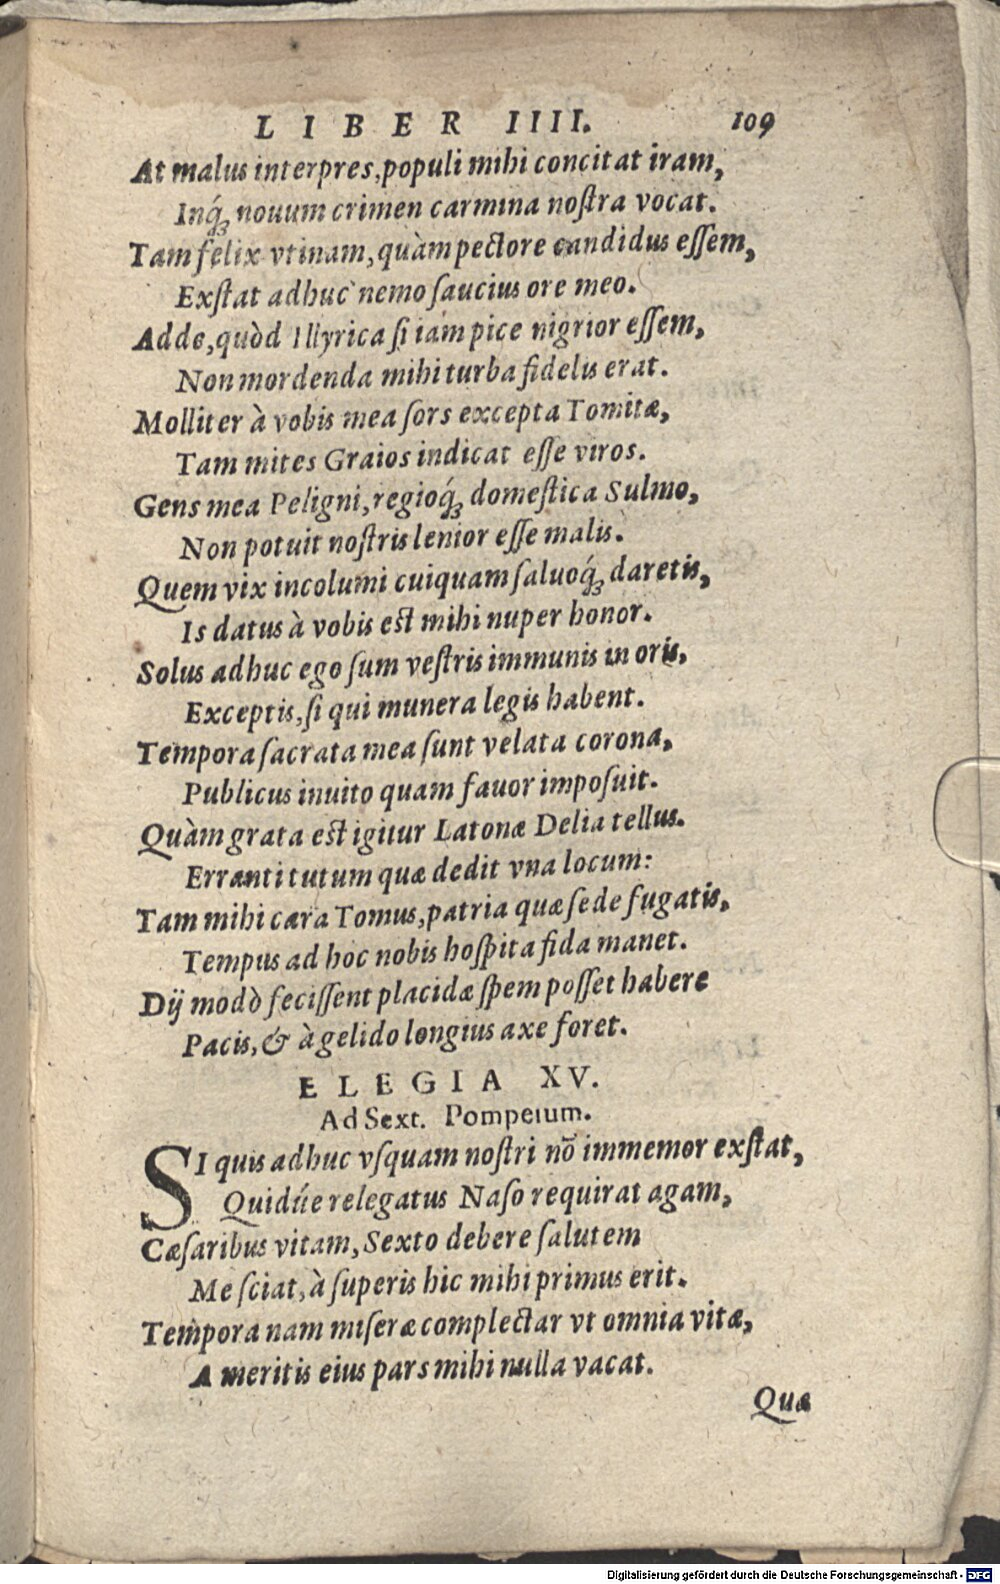 LIBER IIII. 109
At malus interpres, populi mihi concitat iram,
Inq́ꝫ nouum crimen carmina noſtra vocat.
Tam felix vtinam, quàm pectore candidus eſſem,
Exſtat adhuc nemo ſaucius ore meo.
Adde, quòd Illyrica ſi iam pice nigrior eſſem,
Non mordenda mihi turba fidelis erat.
Molliter à vobis mea ſors excepta Tomitæ,
Tam mites Graios indicat eſſe viros.
Gens mea Peligni, regioq́ꝫ domeſtica Sulmo,
Non potuit noſtris lenior eſſe malis.
Quem vix incolumi cuiquam ſaluoq́ꝫ daretis,
Is datus à vobis est mihi nuper honor.
Solus adhuc ego ſum veſtris immunis in oris,
Exceptis, ſi qui munera legis habent.
Tempora ſacrata mea ſunt velata corona,
Publicus inuito quam fauor impoſuit.
Quàm grata est igitur Latonæ Delia tellus.
Erranti tutum quæ dedit vna locum:
Tam mihi cara Tomus, patria quæ ſede fugatis,
Tempus ad hoc nobis hoſpita fida manet.
Dij modò feciſſent placidæ ſpem poſſet habere
Pacis, & à gelido longius axe foret.
ELEGIA XV.
Ad Sext. Pompeium.
SI quis adhuc vſquam noſtri nō immemor exſtat,
Quidúe relegatus Naſo requirat agam,
Cæſaribus vitam, Sexto debere ſalutem
Me ſciat, à ſuperis hic mihi primus erit.
Tempora nam miſeræ complectar vt omnia vitæ,
A meritis eius pars mihi nulla vacat.
Quæ
Digitalisierung gefördert durch die Deutsche Forschungsgemeinschaft - DFG